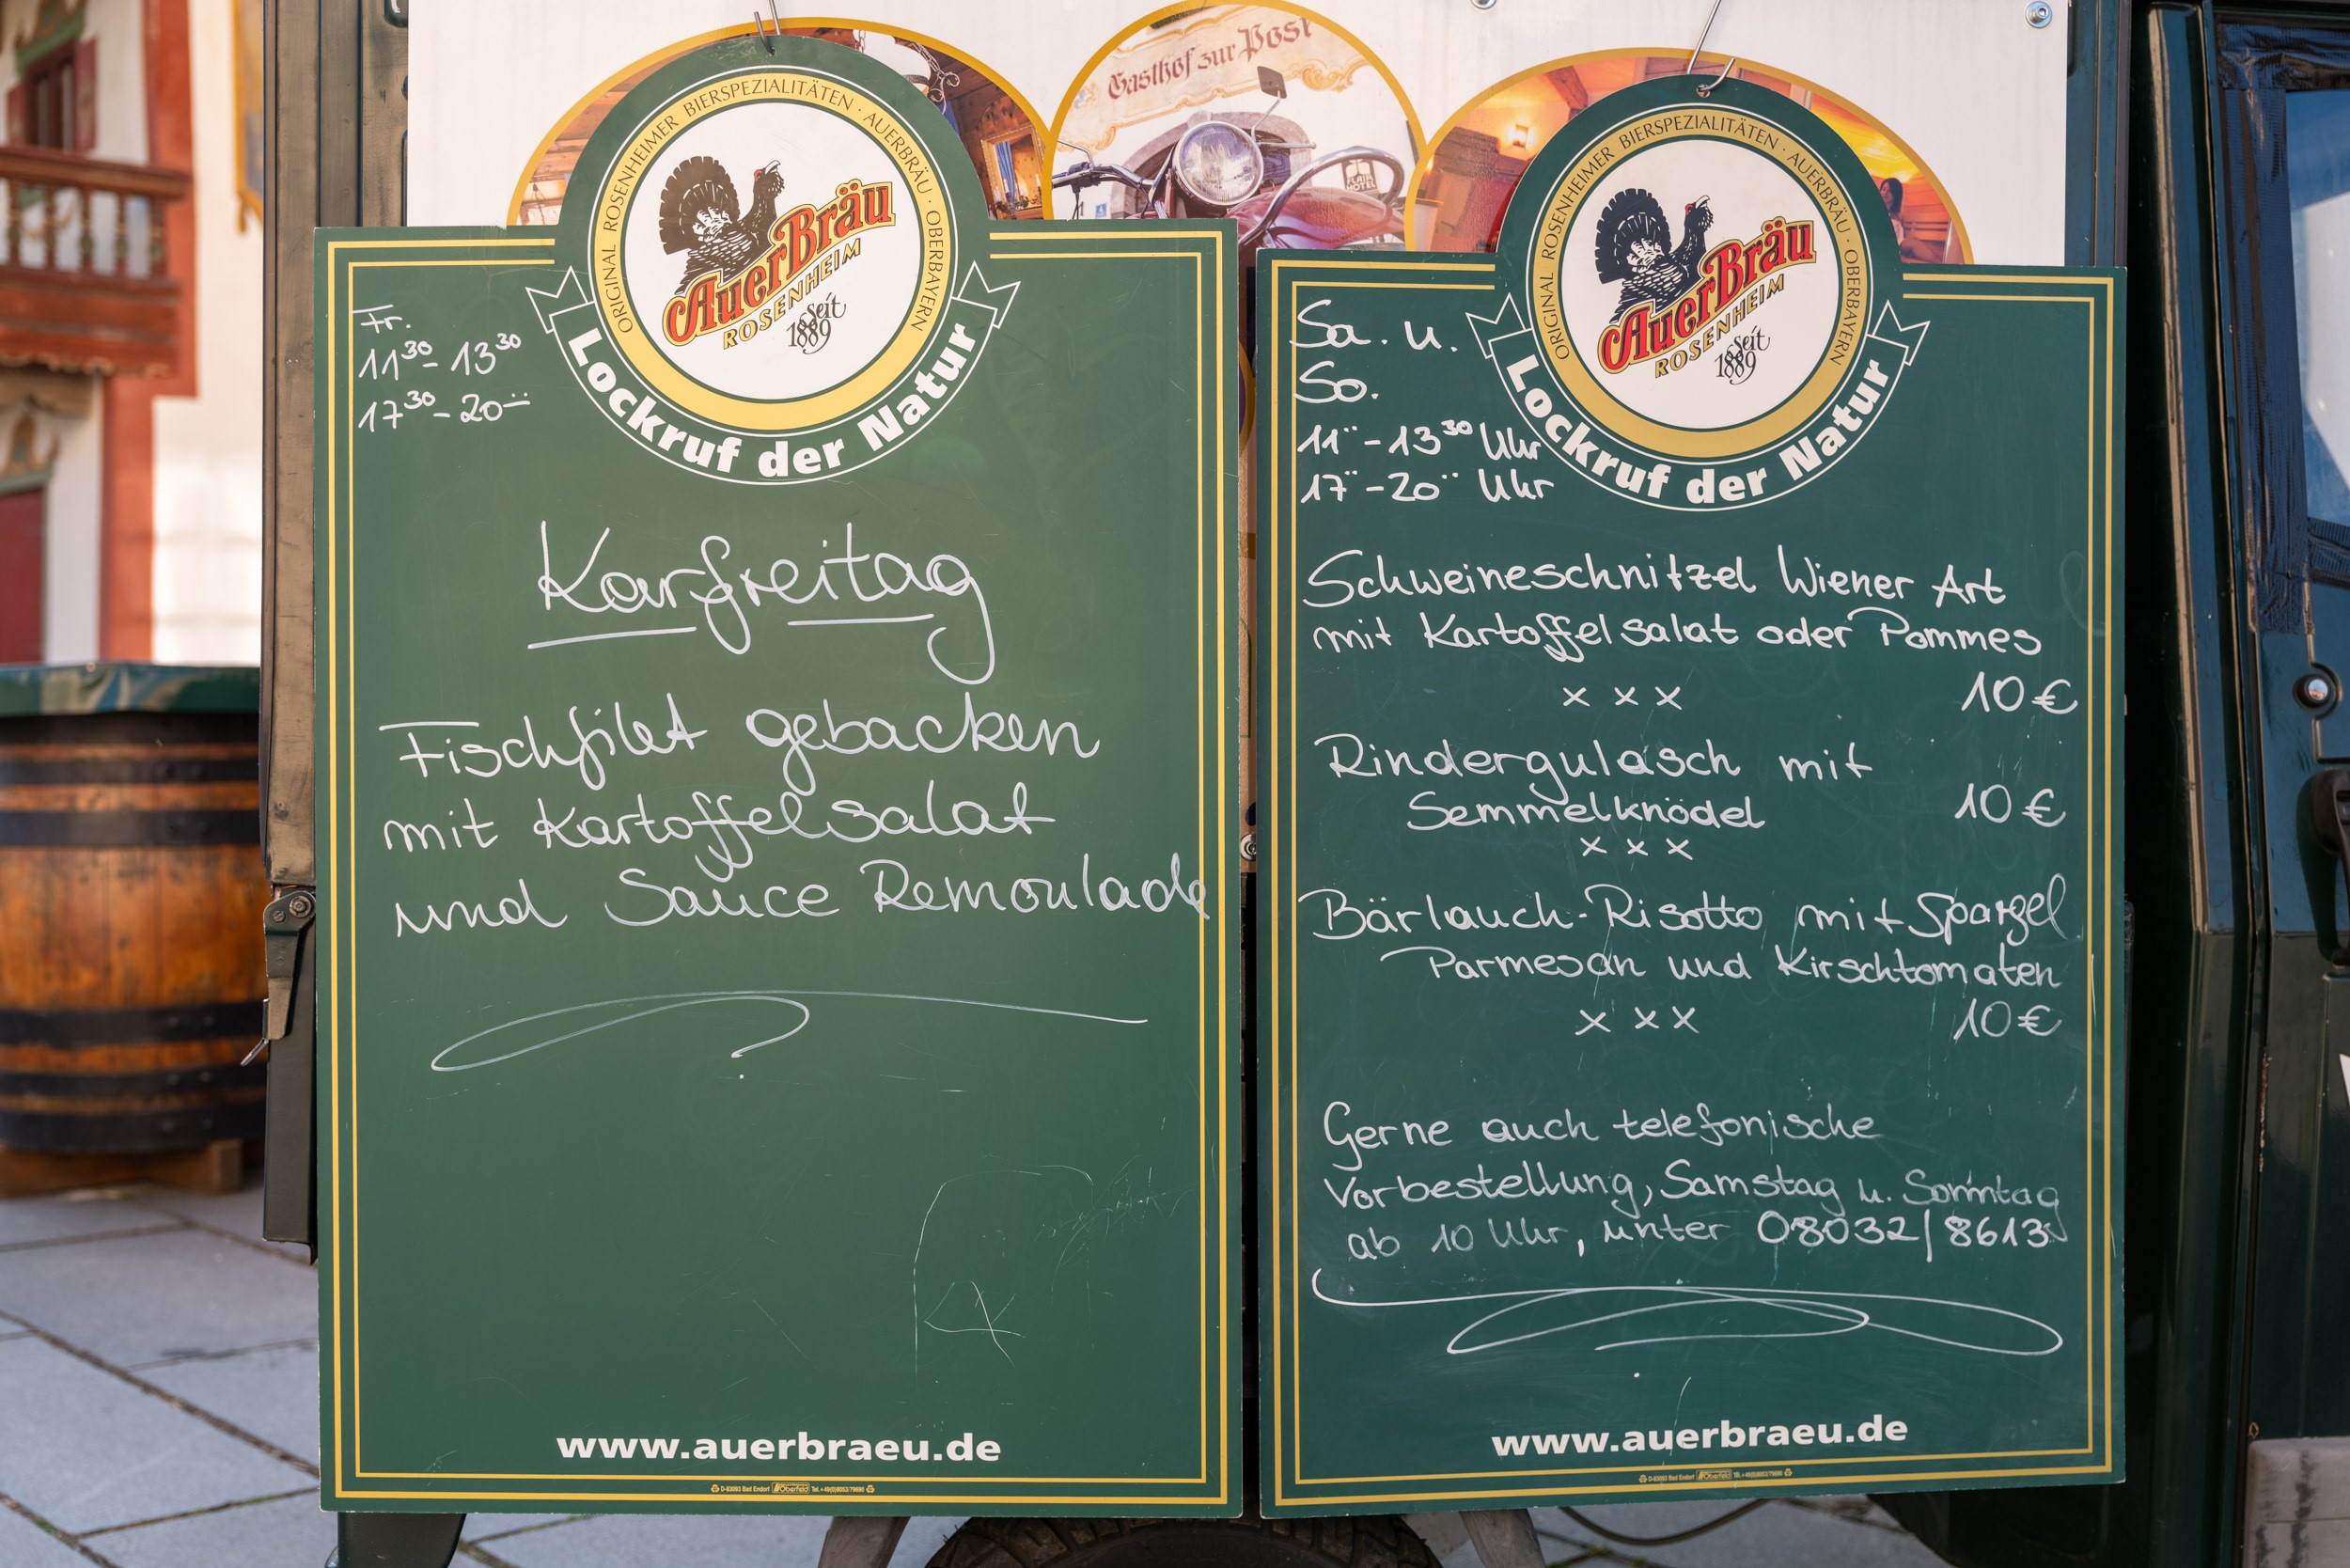 Gasthof zur Post
ORIGINAL ROSENHEIMER BIERSPEZIALITÄTEN · AUERBRÄU · OBERBAYERN
AuerBräu
ROSENHEIM
seit
1889
Lockruf der Natur
Fr.
11³⁰ - 13³⁰
17³⁰ - 20⁻⁻
Karfreitag
Fischfilet gebacken
mit Kartoffelsalat
und Sauce Remoulade
www.auerbraeu.de
D-83093 Bad Endorf Oberfeld Tel. +49(0)8053/79690
ORIGINAL ROSENHEIMER BIERSPEZIALITÄTEN · AUERBRÄU · OBERBAYERN
AuerBräu
ROSENHEIM
seit
1889
Lockruf der Natur
Sa. u.
So.
11¨ - 13³⁰ Uhr
17¨ - 20¨ Uhr
Schweineschnitzel Wiener Art
mit Kartoffelsalat oder Pommes
x x x 10 €
Rindergulasch mit
Semmelknödel 10 €
x x x
Bärlauch-Risotto mit Spargel
Parmesan und Kirschtomaten
x x x 10 €
Gerne auch telefonische
Vorbestellung, Samstag u. Sonntag
ab 10 Uhr, unter 08032/8613
www.auerbraeu.de
D-83093 Bad Endorf Oberfeld Tel. +49(0)8053/79690